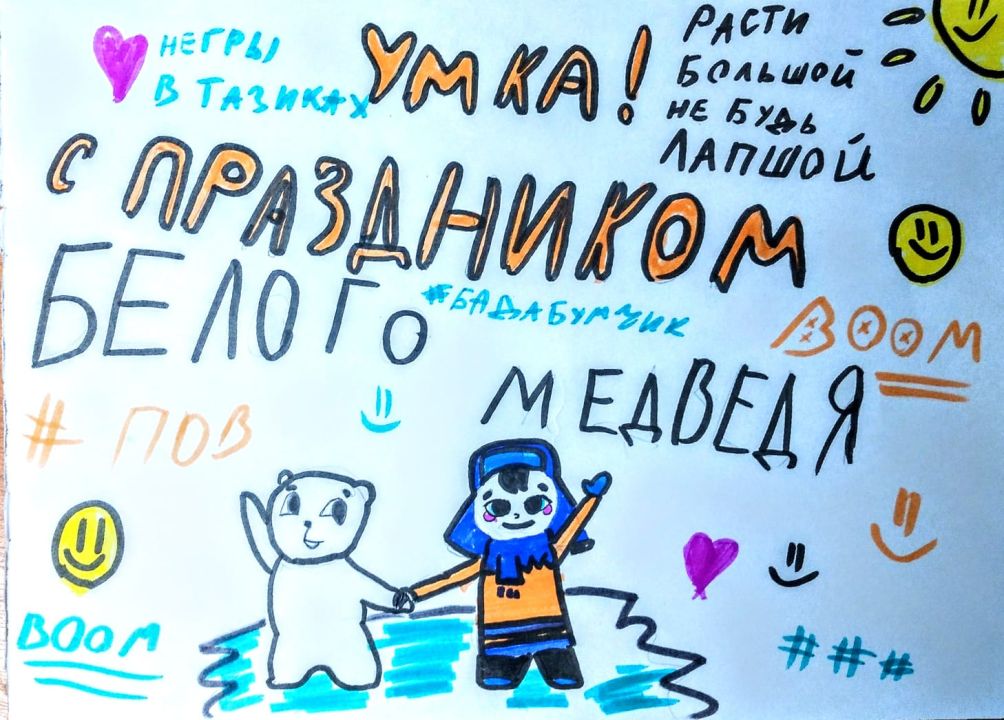 НЕГРЫ
В ТАЗИКАХ
УМКА!
РАСТИ
БОЛЬШОЙ
НЕ БУДЬ
ЛАПШОЙ
С ПРАЗДНИКОМ
БЕЛОГО
#БАДАБУМЧИК
BOOM
МЕДВЕДЯ
# ПОВ
BOOM
###